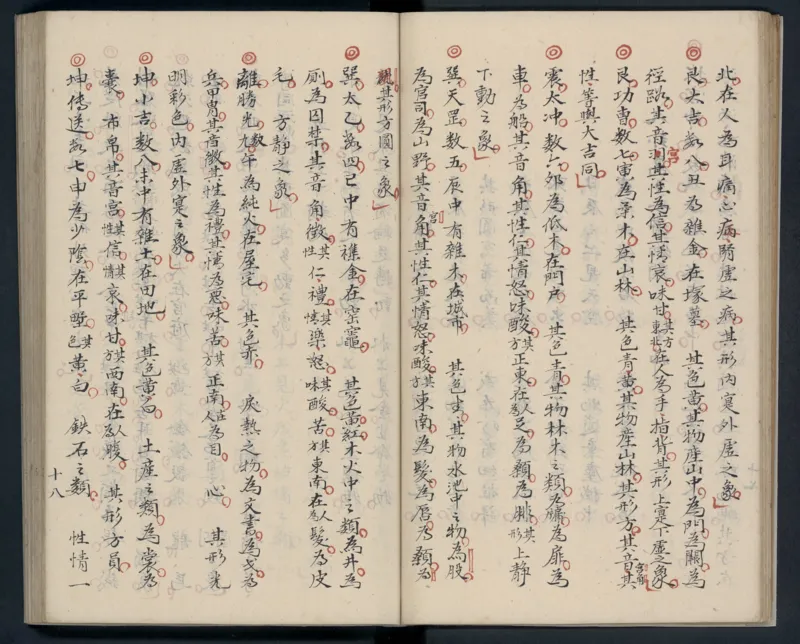 北在人為耳痛心病腎虛之病其形內實外虛之象
◎艮大吉數八丑為雜金在塚墓 其色黃其物產山中為門為關為
徑路其音宮其性為信其情哀味甘其方東北在人為手指背其形上實下虛之象
◎艮功曹數七寅為柔木在山林 其色青黃其物產山林其形方其音其
性等與大吉同
◎震太冲數六卯為低木在門戶 其色青其物林木之類為牖為扉為
車為船其音角其性仁其情怒味酸其方正東在人為足為額為腓其形上靜
下動之象
◎巽天罡數五辰中有雜木在城市 其色生其物水池中之物為股
為宮司為山野其音角宮其性仁其情怒味酸其方東南為髮為唇為頰為
其形方圓之象
◎巽太乙數四巳中有雜金在窯竈 其色黃紅木火中之類為井為
厠為囚禁其音角徵其性仁禮其情樂怒味酸苦其方東南在人為髮為皮
毛 方靜之象
◎離勝光數九午為純火在屋宅 其色赤 戾熱之物為文書為戈為
兵甲冑其音徵其性為禮其情為惡味苦其方正南在人為目 心 其形光
明彩色內虛外實之象
◎坤小吉數八未中有雜土在田地 其色黃白 土產之類為裳為
囊 布帛其音宮其性信其情哀味甘其方西南在人為腹 其形方員
◎坤傳送數七申為少陰在平野其色黃白 鉄石之類 性情一
十八